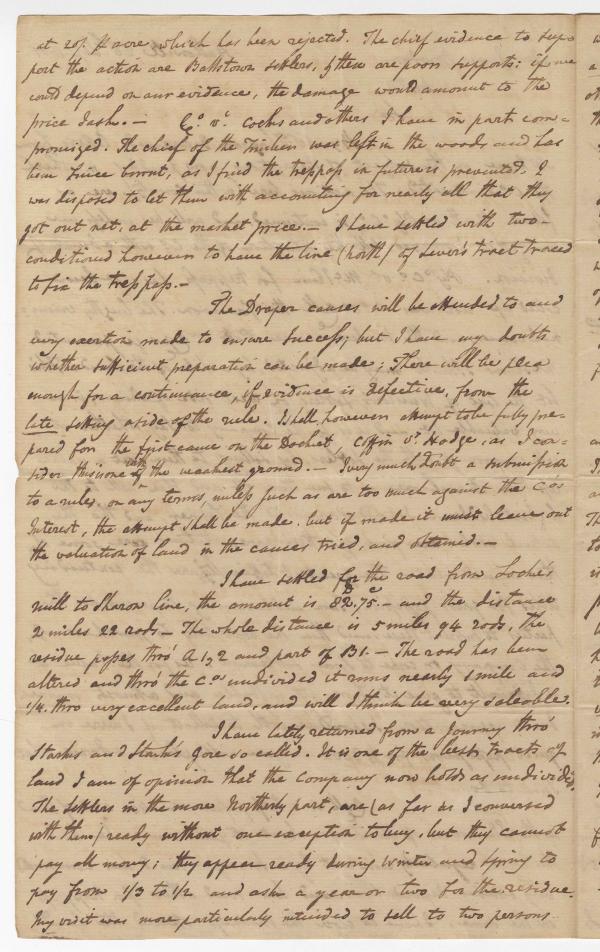 at 20/. ⅌ acre which has been rejected. The chief evidence to sup=
port the action are Ballstown settlers, & these are poor supports: if we
could depend on our evidence, the damage would amount to the
price I ask. — Co. vs. Cocks and others I have in part com=
promized. The chief of the timber was left in the woods and has
been since burnt, as I find the trespass in future is prevented, I
was disposed to let them with accounting for nearly all that they
got out net, at the market price. — I have settled with two —
conditioned however to have the line (north) of Lever's tract traced
to fix the trespass. —
The Draper causes will be attended to and
every exertion made to ensure success; but I have my doubts
whether sufficient preparation can be made; There will be plea
enough for a continuance, if evidence is defective, from the
late setting aside of the rules. I shall, however attempt to be fully pre=
pared for the first cause on the Docket, Coffin vs. Hodge, as I con=
sider this one of the weakest ground. — I very much doubt a submission
to a rule, on any terms, unless such as are too much against the Cos
Interest, the attempt shall be made. but if made it must leave out
the valuation of land in the causes tried, and obtained. —
I have settled for the road from Locke's
mill to Sharon line, the amount is 82D,75c. — and the distance
2 miles 22 rods — The whole distance is 5 miles 94 rods, the
residue passes thro' A 1, 2 and part of B1. — The road has been
altered and thro' the Cos undivided it runs nearly 1 mile and
1/4. thro very excellent land, and will I think be very saleable.
I have lately returned from a Journey thro'
Starks and Stark's gore so called. It is one of the best tracts of
land I am of opinion that the Company now holds as undivided.
The settlers in the more Northerly part, are (as far as I conversed
with them) ready without one exception to buy, but they cannot
pay all money; they appear ready during Winter and Spring to
pay from 1/3 to 1/2 and ask a year or two for the residue.
My visit was more particularly intended to sell to two persons